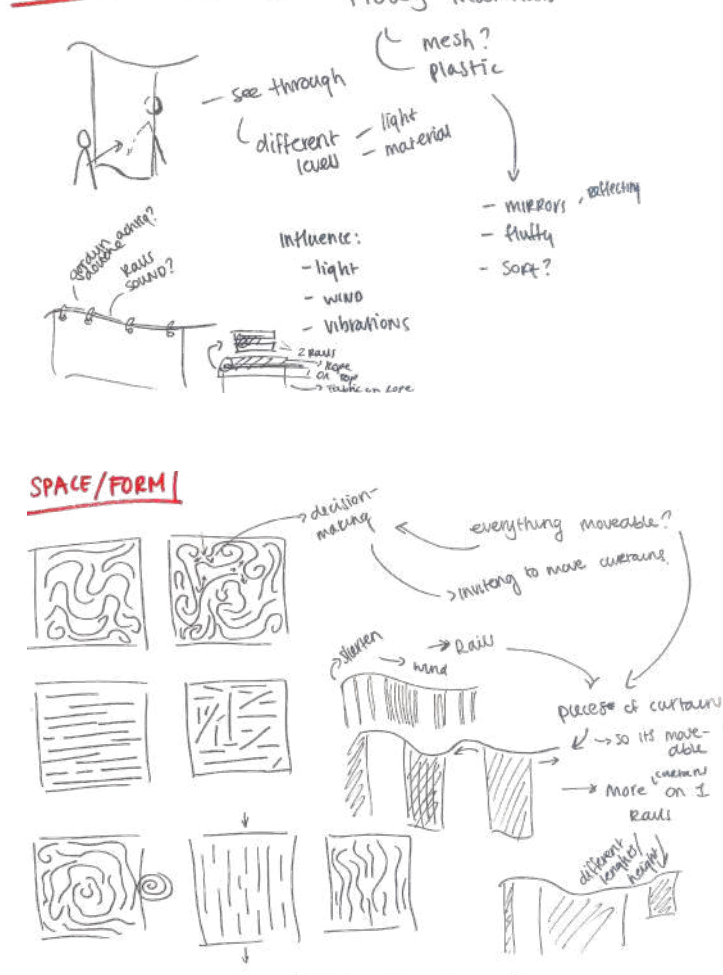 mesh?
plastic
see through
different
levels
- light
- material
- MIRRORS, reflecting
- fluffy
- SOFT?
gordijn
douche
achtig?
RAILS
SOUND?
Influence:
- light
- WIND
- VIBRATIONS
2 RAILS
Rope
OR Rope
Fabric on Rope
SPACE/FORM
decision-
making
everything moveable?
inviteng to move curtains
→ Rails
→ wind
pieces of curtain
→ so its move-
able
→ More curtains on 1
Rails
different
lenghts/
height